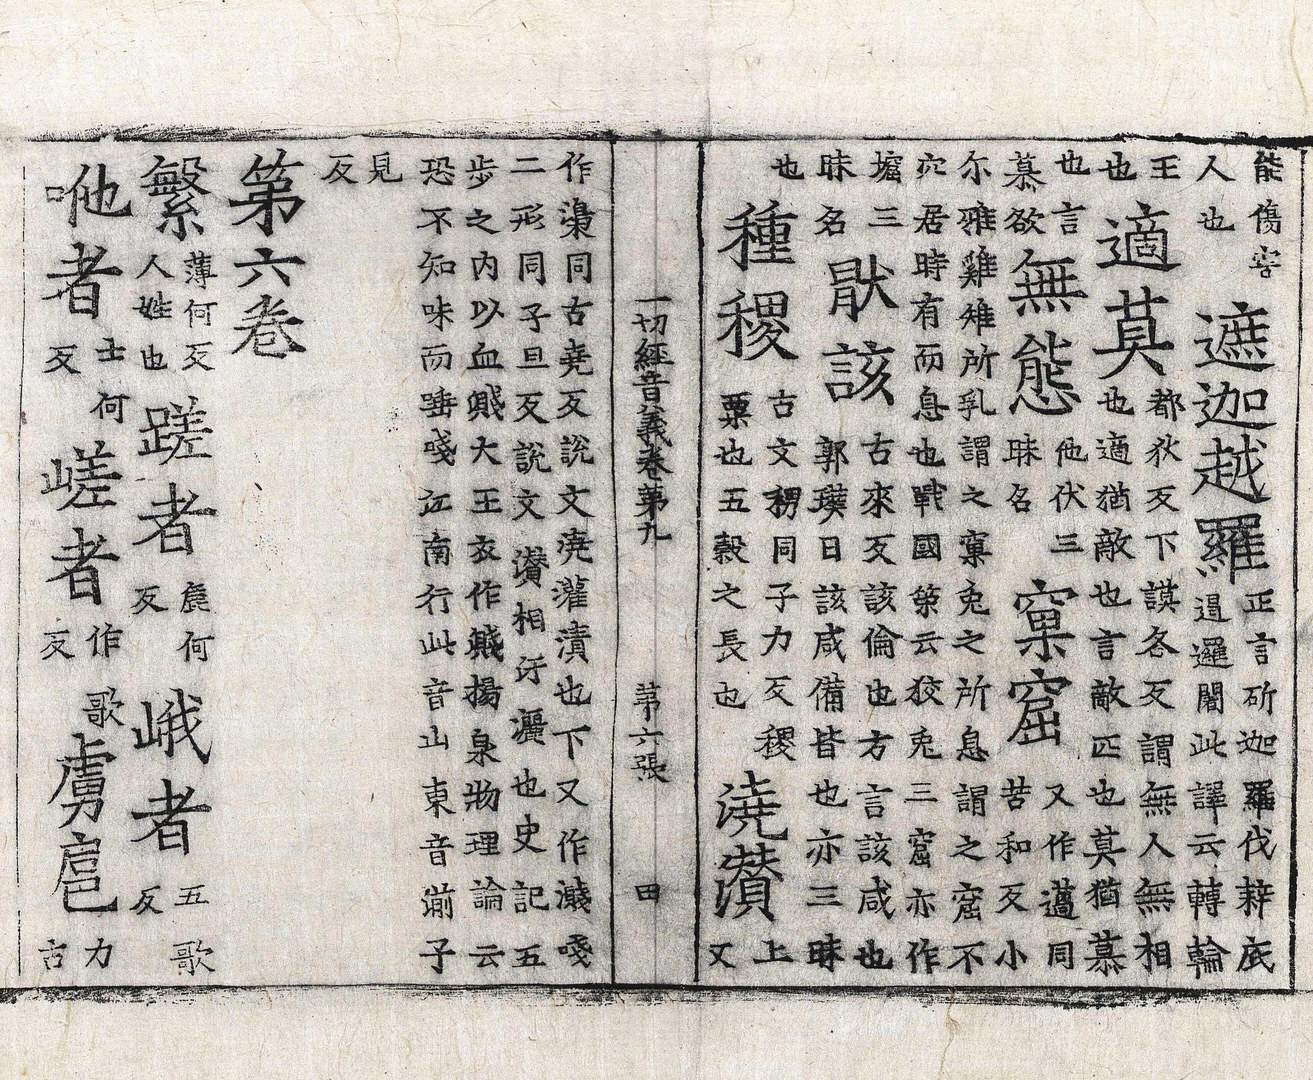 能傷害
人也
遮迦越羅
正言斫迦羅伐辢底
遏邏闍此譯云轉輪
王
也
適莫
都狄反下謨各反謂無人無相
也適猶敵也言敵匹也莫猶慕
也言
慕欲
無態
他伏三
昧名
窠窟
又作邁同
苦和反小
尔雅雞雉所乳謂之窠兔之所息謂之窟不
穴居時有而息也戰國策云狡兔三窟亦作
堀三
昧名
肰該
古來反該倫也方言該咸也
郭璞曰該咸備皆也亦三昧
也
種稷
古文同子力反稷
粟也五穀之長也
澆灒
上
又
一切經音義卷第九 苐六張 田
作㵂同古堯反說文澆灌漬也下又作濺
二形同子旦反說文灒相汙灑也史記五
步之内以血濺大王衣作濺揚泉物理論云
恐不知味而唾江南行此音山東音湔子
見
反
第六卷
繁
薄何反
人姓也
蹉者
麁何
反
峨者
五歌
反
咃者
土何
反
嵯者
作歌
反
虜扈
力
古